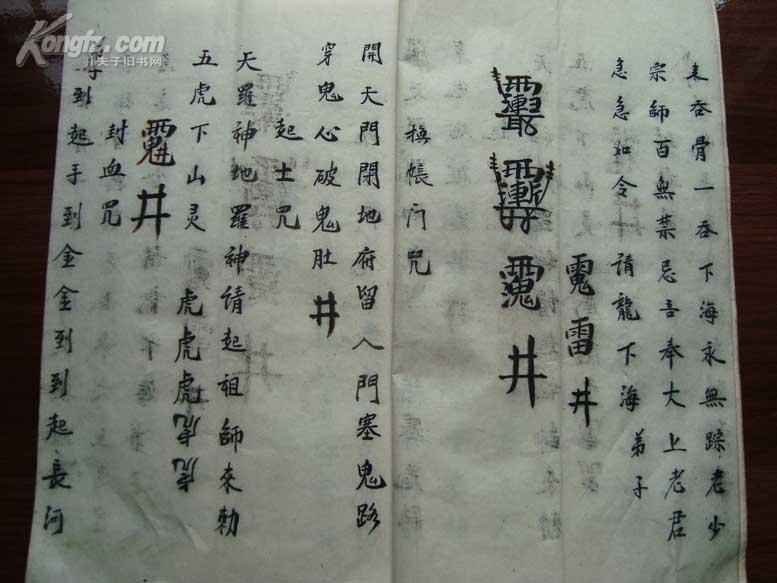 Kongfz.com
孔夫子旧书网
耒吞骨一吞下海永無踪老少
宗師百無禁忌吾奉大上老君
急急如令 請龍下海 弟子
雷井
井
換帳门咒
開天門開地府留人門塞鬼路
穿鬼心破鬼肚井
起土咒
天羅神地羅神請起祖師來勅
五虎下山灵 虎虎虎虎虎
井
封血咒
到起手到金金到到起長河